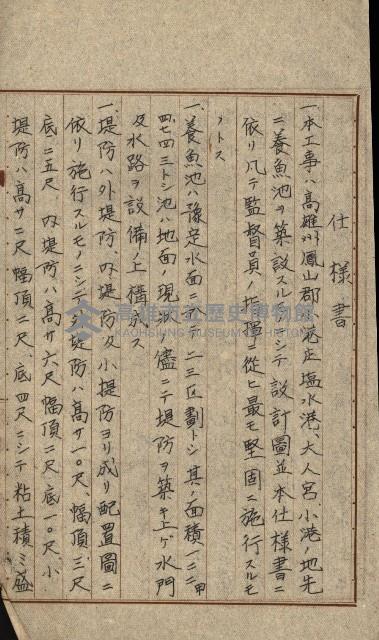 仕様書
一、本工事ハ高雄州鳳山郡小港庄塩水港、大人宮小港ノ地先
ニ養魚池ヲ築設スルモノニシテ設計図並本仕様書ニ
依リ凡テ監督員ノ指揮ニ従ヒ最モ堅固ニ施行スルモ
ノトス
一、養魚池ハ豫定水面ニ 二三区劃トシ其ノ面積一二二甲
四七四三トシ池ハ地面ノ現状ノ儘ニテ堤防ヲ築キ上ゲ水門
及水路ヲ設備ノ上構成ス
一、堤防ハ外堤防、内堤防及小堤防ヨリ成リ配置圖ニ
依リ施行スルモノニシテ 堤防ハ高サ一〇尺、幅頂三尺
底二五尺、内堤防ハ高サ六尺幅頂二尺底一〇尺、小
堤防ハ高サ二尺幅頂二尺、底四尺ニシテ粘土積ミ盛
高雄市立歷史博物館
KAOHSIUNG MUSEUM OF HISTORY